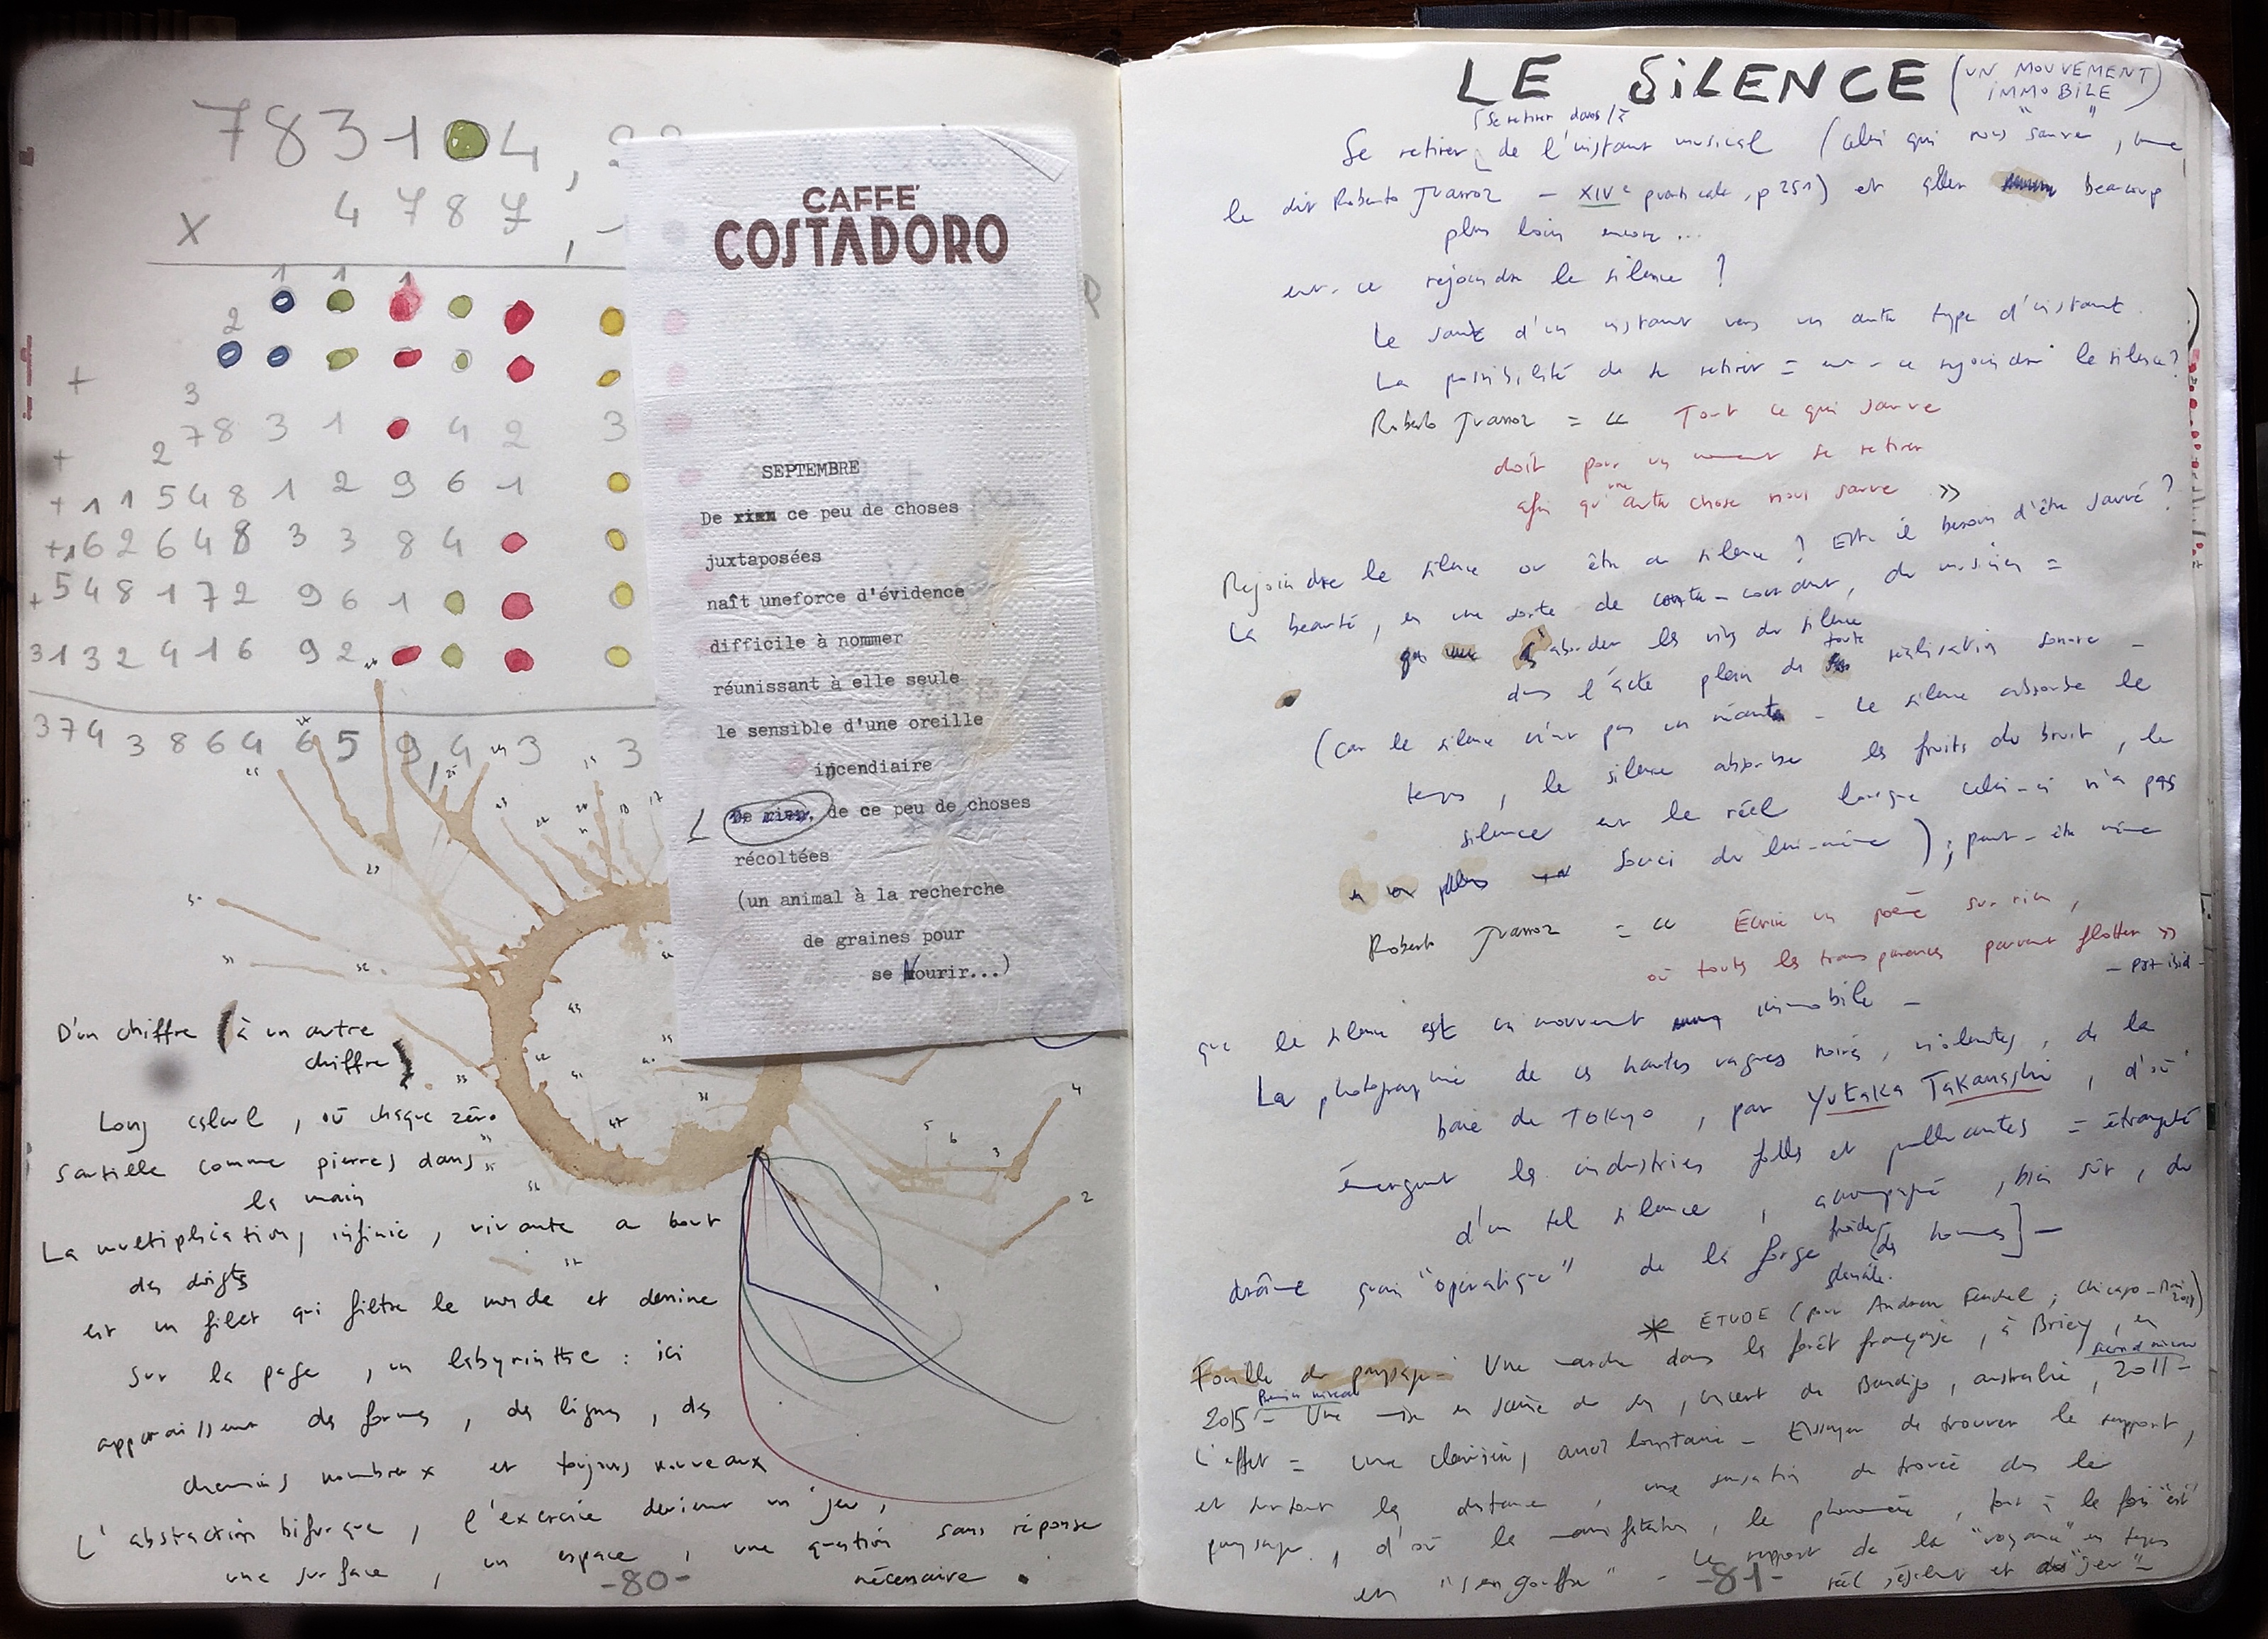 7831 4,
x 4787,-
1 1 1
2
+
3
78 3 1 4 2 3
+
2
+ 1 1 5 4 8 1 2 9 6 1
+1 6 2 6 4 8 3 3 8 4
+ 5 4 8 1 7 2 9 6 1
3 1 3 2 4 1 6 9 2
3 7 4 3 8 6 4 6 5 9 4, 3 3
CAFFE'
COSTADORO
SEPTEMBRE
De rien ce peu de choses
juxtaposées
naît uneforce d'évidence
difficile à nommer
réunissant à elle seule
le sensible d'une oreille
incendiaire
De rien, de ce peu de choses
récoltées
(un animal à la recherche
de graines pour
se Nourir...)
D'un chiffre (à un autre
chiffre)
Long calcul, où chaque zéro
scintille comme pierres dans
la main
La multiplication, infinie, vivante a bout
des doigts
est un filet qui filtre le monde et dessine
sur la page, un labyrinthe : ici
apparaissent des formes, des lignes, des
chemins nombreux et toujours nouveaux
L'abstraction bifurque, l'exercice devient un jeu,
une surface, un espace, une question sans réponse
nécessaire.
-80-
LE SiLENCE (UN MOUVEMENT
IMMOBILE)
(se retirer dans/à
Se retirer de l'instant musical (celui qui nous "sauve", comme
le dit Roberto Juarroz - XIVe verticale, p 251) et aller beaucoup
plus loin encore...
est-ce rejoindre le silence ?
Le saut d'un instant vers un autre type d'instant.
La possibilité de se retirer = est-ce rejoindre le silence ?
Roberto Juarroz = « Tout ce qui sauve
doit pour un moment se retirer
afin qu'une autre chose nous sauve »
Rejoindre le silence ou être du silence ? Est-il besoin d'être sauvé ?
La beauté, en une sorte de contre-courant, du musicien =
d'aborder les rives du silence
dans l'acte plein de toute réalisation sonore -
(car le silence n'est pas un néant - Le silence absorbe le
temps, le silence absorbe les fruits du bruit, le
silence est le réel lorsque celui-ci n'a pas
plus souci de lui-même) ; peut-être même
Roberto Juarroz = « Écrire un poème sur rien,
où toutes les transparences peuvent flotter »
- p ibid -
que le silence est un mouvement immobile -
La photographie de ces hautes vagues noires, violentes, de la
baie de TOKYO, par YUTAKA TAKANASHI, d'où
émergent les industries folles et polluantes = étrangeté
d'un tel silence, accompagné, bien sûr, du
drame quasi "opératique" de la forge froide [des hommes] -
* ÉTUDE (pour Andrew Fenchel ; Chicago -
Fouille du paysage - Une marche dans la forêt française, à Briey, en
Premier niveau second niveau
2015 - Une mise en scène du son, vincent de Bendigo, australie, 2011 -
L'effet = une clairière, aussi lointaine - Essayer de trouver le rapport,
et surtout la distance, une sensation de trouée dans le
paysage, d'où la manifestation, le phénomène, tout à la fois "est"
en "s'engouffre" - Le rapport de la "voyance" en temps
réel et du "jeu" -
-81-